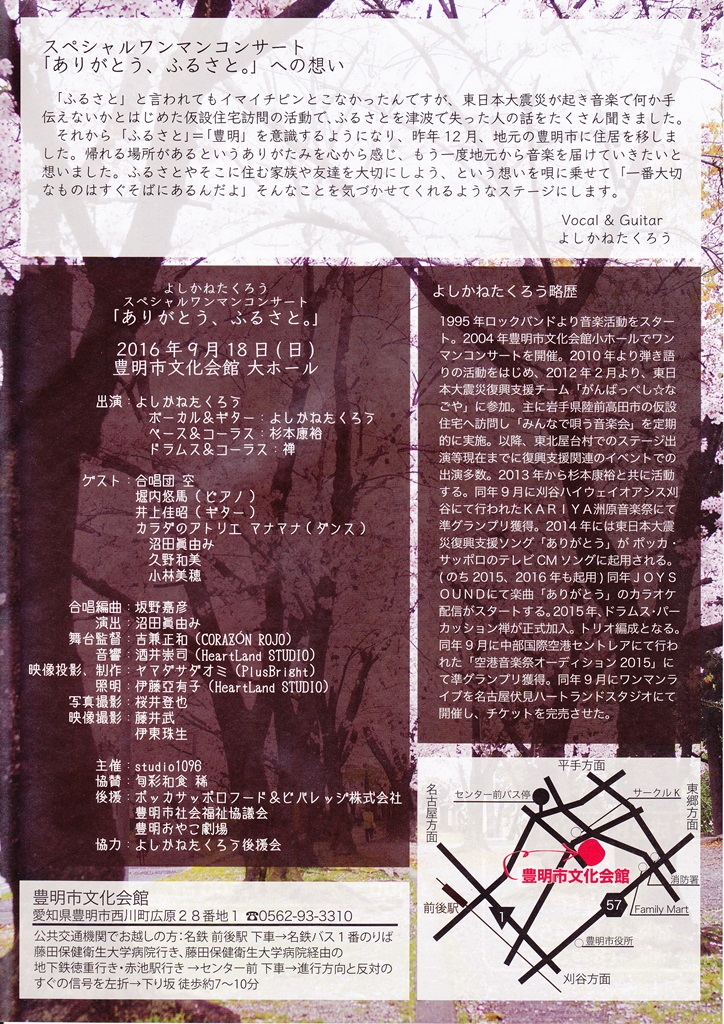 スペシャルワンマンコンサート
「ありがとう、ふるさと。」への想い
「ふるさと」と言われてもイマイチピンとこなかったんですが、東日本大震災が起き音楽で何か手
伝えないかとはじめた仮設住宅訪問の活動で、ふるさとを津波で失った人の話をたくさん聞きました。
それから「ふるさと」=「豊明」を意識するようになり、昨年12月、地元の豊明市に住居を移しま
した。帰れる場所があるというありがたみを心から感じ、もう一度地元から音楽を届けていきたいと
想いました。ふるさとやそこに住む家族や友達を大切にしよう、という想いを唄に乗せて「一番大切
なものはすぐそばにあるんだよ」そんなことを気づかせてくれるようなステージにします。
Vocal & Guitar
よしかねたくろう
よしかねたくろう
スペシャルワンマンコンサート
「ありがとう、ふるさと。」
2016年9月18日(日)
豊明市文化会館 大ホール
出演：よしかねたくろう
ボーカル＆ギター：よしかねたくろう
ベース＆コーラス：杉本康裕
ドラムス＆コーラス：禅
ゲスト：合唱団 空
堀内悠馬(ピアノ)
井上佳昭(ギター)
カラダのアトリエ マナマナ(ダンス)
沼田眞由み
久野和美
小林美穂
合唱編曲：坂野嘉彦
演出：沼田眞由み
舞台監督：吉兼正和(CORAZÓN ROJO)
音響：酒井崇司(HeartLand STUDIO)
映像投影、制作：ヤマダサダオミ(PlusBright)
照明：伊藤亞有子(HeartLand STUDIO)
写真撮影：桜井登也
映像撮影：藤井武
伊東珠生
主催：studio1096
協賛：旬彩和食 稀
後援：ポッカサッポロフード＆ビバレッジ株式会社
豊明市社会福祉協議会
豊明おやこ劇場
協力：よしかねたくろう後援会
よしかねたくろう略歴
1995年ロックバンドより音楽活動をスター
ト。2004年豊明市文化会館小ホールでワン
マンコンサートを開催。2010年より弾き語
りの活動をはじめ、2012年2月より、東日
本大震災復興支援チーム「がんばっぺし☆な
ごや」に参加。主に岩手県陸前高田市の仮設
住宅へ訪問し「みんなで唄う音楽会」を定期
的に実施。以降、東北屋台村でのステージ出
演等現在までに復興支援関連のイベントでの
出演多数。2013年から杉本康裕と共に活動
する。同年9月に刈谷ハイウェイオアシス刈
谷にて行われたKARIYA洲原音楽祭にて
準グランプリ獲得。2014年には東日本大震
災復興支援ソング「ありがとう」がポッカ・
サッポロのテレビCMソングに起用される。
(のち2015、2016年も起用)同年JOYS
OUNDにて楽曲「ありがとう」のカラオケ
配信がスタートする。2015年、ドラムス・パー
カッション禅が正式加入。トリオ編成となる。
同年9月に中部国際空港セントレアにて行わ
れた「空港音楽祭オーディション2015」に
て準グランプリ獲得。同年9月にワンマンラ
イブを名古屋伏見ハートランドスタジオにて
開催し、チケットを完売させた。
平手方面
センター前バス停
サークルK
名古屋方面
東郷方面
豊明市文化会館
消防署
前後駅
1
57
Family Mart
豊明市役所
刈谷方面
豊明市文化会館
愛知県豊明市西川町広原２８番地１ ☎0562-93-3310
公共交通機関でお越しの方：名鉄 前後駅 下車→名鉄バス１番のりば
藤田保健衛生大学病院行き、藤田保健衛生大学病院経由の
地下鉄徳重行き・赤池駅行き →センター前 下車→進行方向と反対の
すぐの信号を左折→下り坂 徒歩約7〜10分